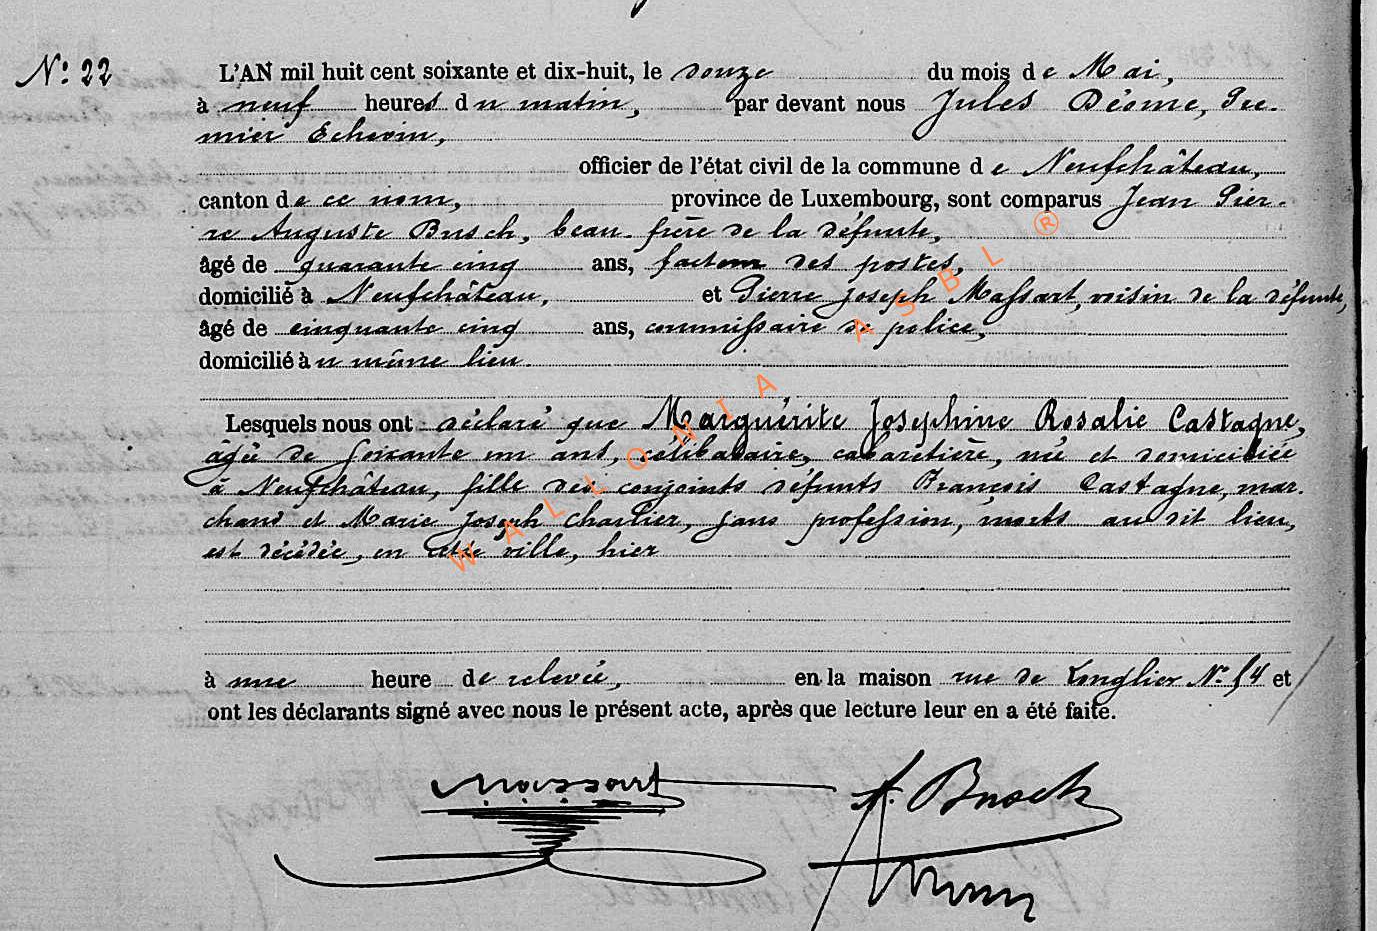 N.º 22
L'AN mil huit cent soixante et dix-huit, le douze du mois de Mai,
à neuf heures du matin, par devant nous Jules Désiré, Pre-
mier Echevin,
officier de l'état civil de la commune de Neufchâteau,
canton de ce nom, province de Luxembourg, sont comparus Jean Pier-
re Auguste Busch, beau-frère de la défunte,
âgé de quarante cinq ans, facteur des postes,
domicilié à Neufchâteau, et Pierre Joseph Massart, voisin de la défunte,
âgé de cinquante cinq ans, commissaire de police,
domicilié au même lieu.
Lesquels nous ont déclaré que Marguérite Josephine Rosalie Castagne,
âgée de soixante un ans, célibataire, cabaretière, née et domiciliée
à Neufchâteau, fille des conjoints défunts François Castagne, mar-
chand et Marie Joseph Charlier, sans profession, morts au dit lieu,
est décédée, en cette ville, hier
à une heure de relevée, en la maison rue de Longlier N.º 54 et
ont les déclarants signé avec nous le présent acte, après que lecture leur en a été faite.
Massart A. Busch
WALLONIA ASBL ®